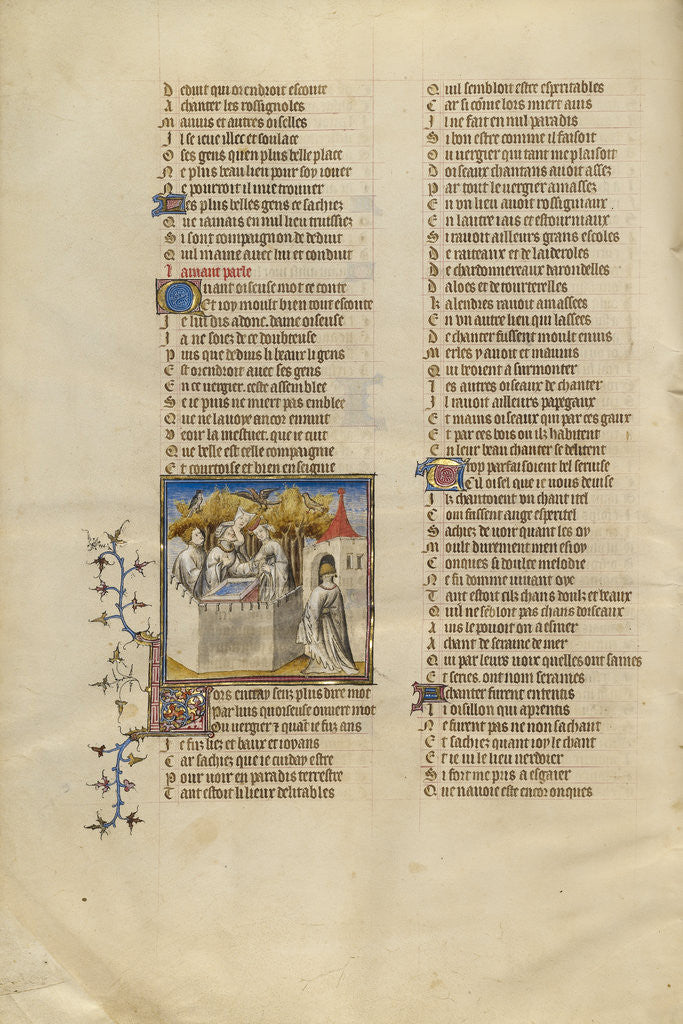 Deduit qui orendroit escoute
A chanter les rossignoles
Mauuis et autres oiselles
Il se ieue illec et soulace
O ses gens quen plus belle place
Ne plus beau lieu pour soy iouer
Ne pourroit il mie trouuer
Les plus belles gens ce sachiez
Que iamais en nul lieu truissiez
Si sont compaignon de deduit
Quil maine auec lui et conduit
Lamant parle
Quant oiseuse mot ce conte
Et ioy moult bien tout escoute
Je lui dis adonc. dame oiseuse
Ja ne soiez de ce doubteuse
Puis que deduis li beaux li gens
Est orendroit auec ses gens
En ce vergier. ceste assemblee
Se ie puis ne miert pas emblee
Que ne la voye ancor ennuit
Veoir la mestuet. que ie cuit
Que belle est celle compaignie
Et courtoise et bien enseignie
Lors entray senz plus dire mot
Par luis quoiseuse ouuert mot
Ou vergier & quant ie fuz ans
Je fuz liez et baux et ioyans
Car sachiez que ie cuiday estre
Pour voir en paradis terrestre
Tant estoit li lieux delitables
Quil sembloit estre esperitables
Car si come lors miert auis
Il ne fait en nul paradis
Si bon estre comme il faisoit
Ou vergier qui tant me plaisoit
Doiseaux chantans auoit assez
Par tout le vergier amassez
En vn lieu auoit rossigniaux
En lautre iais et estourniaux
Si rauoit ailleurs grans escoles
De roiteaux et de laideroles
De chardonnereaux darondelles
Daloes et de tourterelles
Kalendres rauoit amassees
En vn autre lieu qui lassees
De chanter fussent moult enuis
Merles y auoit et mauuis
Qui beoient a surmonter
Les autres oiseaux de chanter
Il rauoit ailleurs papegaux
Et mains oiseaux qui par ces gaux
Et par ces bois ou ilz habitent
En leur beau chanter se delitent
Trop parfaisoient bel seruise
Cil oisel que ie vous deuise
Ilz chantoient vn chant itel
Com fussent ange esperitel
Sachiez de voir quant les oy
Moult durement men esioy
Conques si doulce melodie
Ne fu domme viuant oye
Tant estoit cilz chans doulz et beaux
Quil ne sebloit pas chans doiseaux
Ains le pouoit on aesmer
A chant de seraine de mer
Qui par leurs uoix quelles ont saines
Et series. ont nom seraines
A chanter furent ententis
Li oisillon qui aprentis
Ne furent pas ne non sachant
Et sachiez quant ioy le chant
Et ie ui le lieu verdoier
Si fort me pris a esgaier
Que nauoie este encor onques